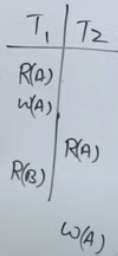 T1 T2
R(A)
W(A)
R(A)
R(B)
W(A)